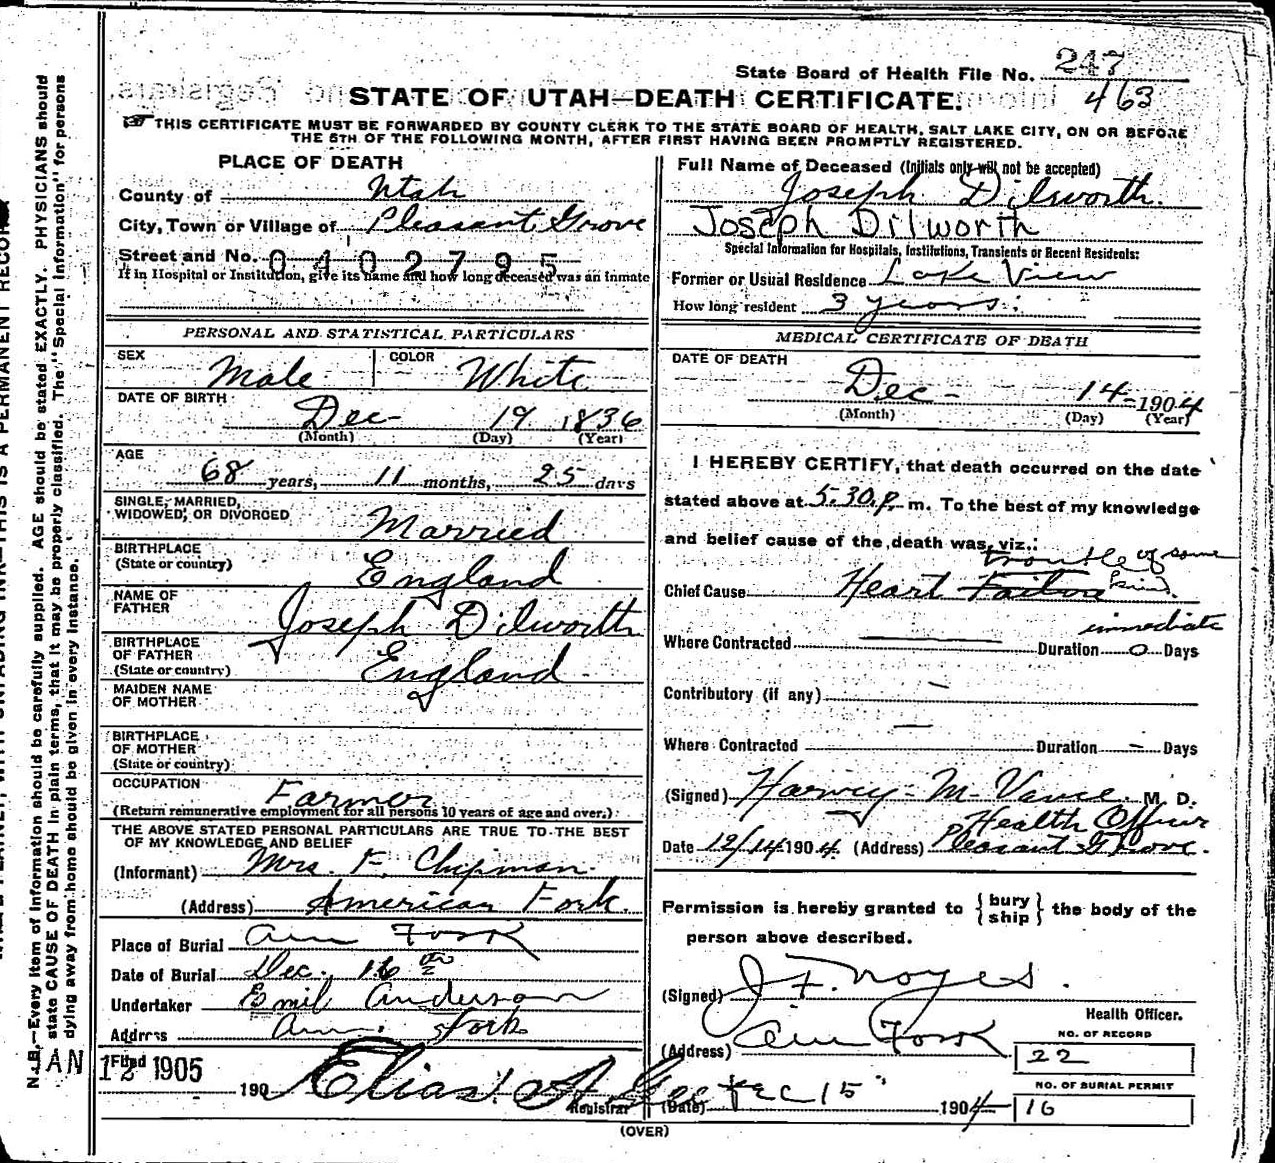 State Board of Health File No. 247
463
STATE OF UTAH—DEATH CERTIFICATE.
THIS CERTIFICATE MUST BE FORWARDED BY COUNTY CLERK TO THE STATE BOARD OF HEALTH, SALT LAKE CITY, ON OR BEFORE
THE 5TH OF THE FOLLOWING MONTH, AFTER FIRST HAVING BEEN PROMPTLY REGISTERED.
PLACE OF DEATH
County of Utah
City, Town or Village of Pleasant Grove
Street and No. 0402795
If in Hospital or Institution, give its name and how long deceased was an inmate
PERSONAL AND STATISTICAL PARTICULARS
SEX Male COLOR White
DATE OF BIRTH Dec 19 1836
(Month) (Day) (Year)
AGE 68 years, 11 months, 25 days
SINGLE, MARRIED,
WIDOWED, OR DIVORCED Married
BIRTHPLACE
(State or country) England
NAME OF
FATHER Joseph Dilworth
BIRTHPLACE
OF FATHER
(State or country) England
MAIDEN NAME
OF MOTHER
BIRTHPLACE
OF MOTHER
(State or country)
OCCUPATION Farmer
(Return remunerative employment for all persons 10 years of age and over.)
THE ABOVE STATED PERSONAL PARTICULARS ARE TRUE TO THE BEST
OF MY KNOWLEDGE AND BELIEF
(Informant) Mrs. F. Chipman
(Address) American Fork.
Place of Burial Am Fork
Date of Burial Dec. 16th
Undertaker Emil Anderson
Address Am. Fork
Filed JAN 12 1905 190
Elias A. Gee
Registrar
Full Name of Deceased (Initials only will not be accepted)
Joseph Dilworth.
Joseph Dilworth
Special Information for Hospitals, Institutions, Transients or Recent Residents:
Former or Usual Residence Lake View
How long resident 3 years.
MEDICAL CERTIFICATE OF DEATH
DATE OF DEATH
Dec - 14 - 1904
(Month) (Day) (Year)
I HEREBY CERTIFY, that death occurred on the date
stated above at 5.30 p. m. To the best of my knowledge
and belief cause of the death was, viz.:
trouble of some
Chief Cause Heart Failure kind.
immediate
Where Contracted — Duration 0 Days
Contributory (if any) —
Where Contracted — Duration — Days
(Signed) Harvey M Vance M. D.
Health Officer
Date 12/14 1904. (Address) Pleasant Grove.
Permission is hereby granted to {bury ship} the body of the
person above described.
(Signed) J F Noyes.
Health Officer.
(Address) Am Fork
NO. OF RECORD
22
NO. OF BURIAL PERMIT
(Date) Dec 15 1904 16
(OVER)
N. B.—Every item of information should be carefully supplied. AGE should be stated EXACTLY. PHYSICIANS should
state CAUSE OF DEATH in plain terms, that it may be properly classified. The "Special Information" for persons
dying away from home should be given in every instance.
THIS IS A PERMANENT RECORD